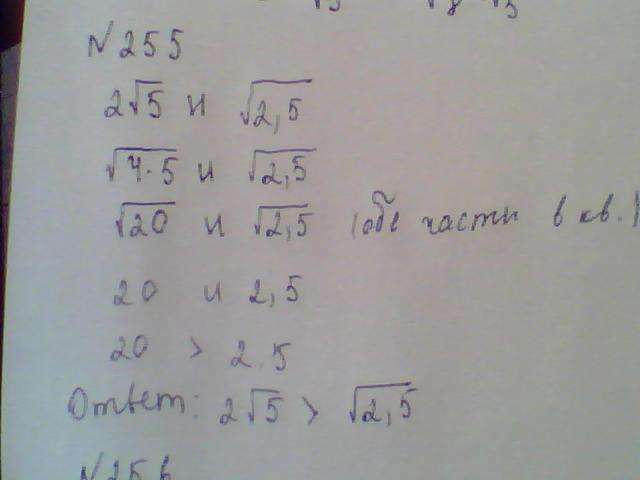 №255
2√5 и √2,5
√4·5 и √2,5
√20 и √2,5 (обе части в кв.)
20 и 2,5
20 > 2.5
Ответ: 2√5 > √2,5